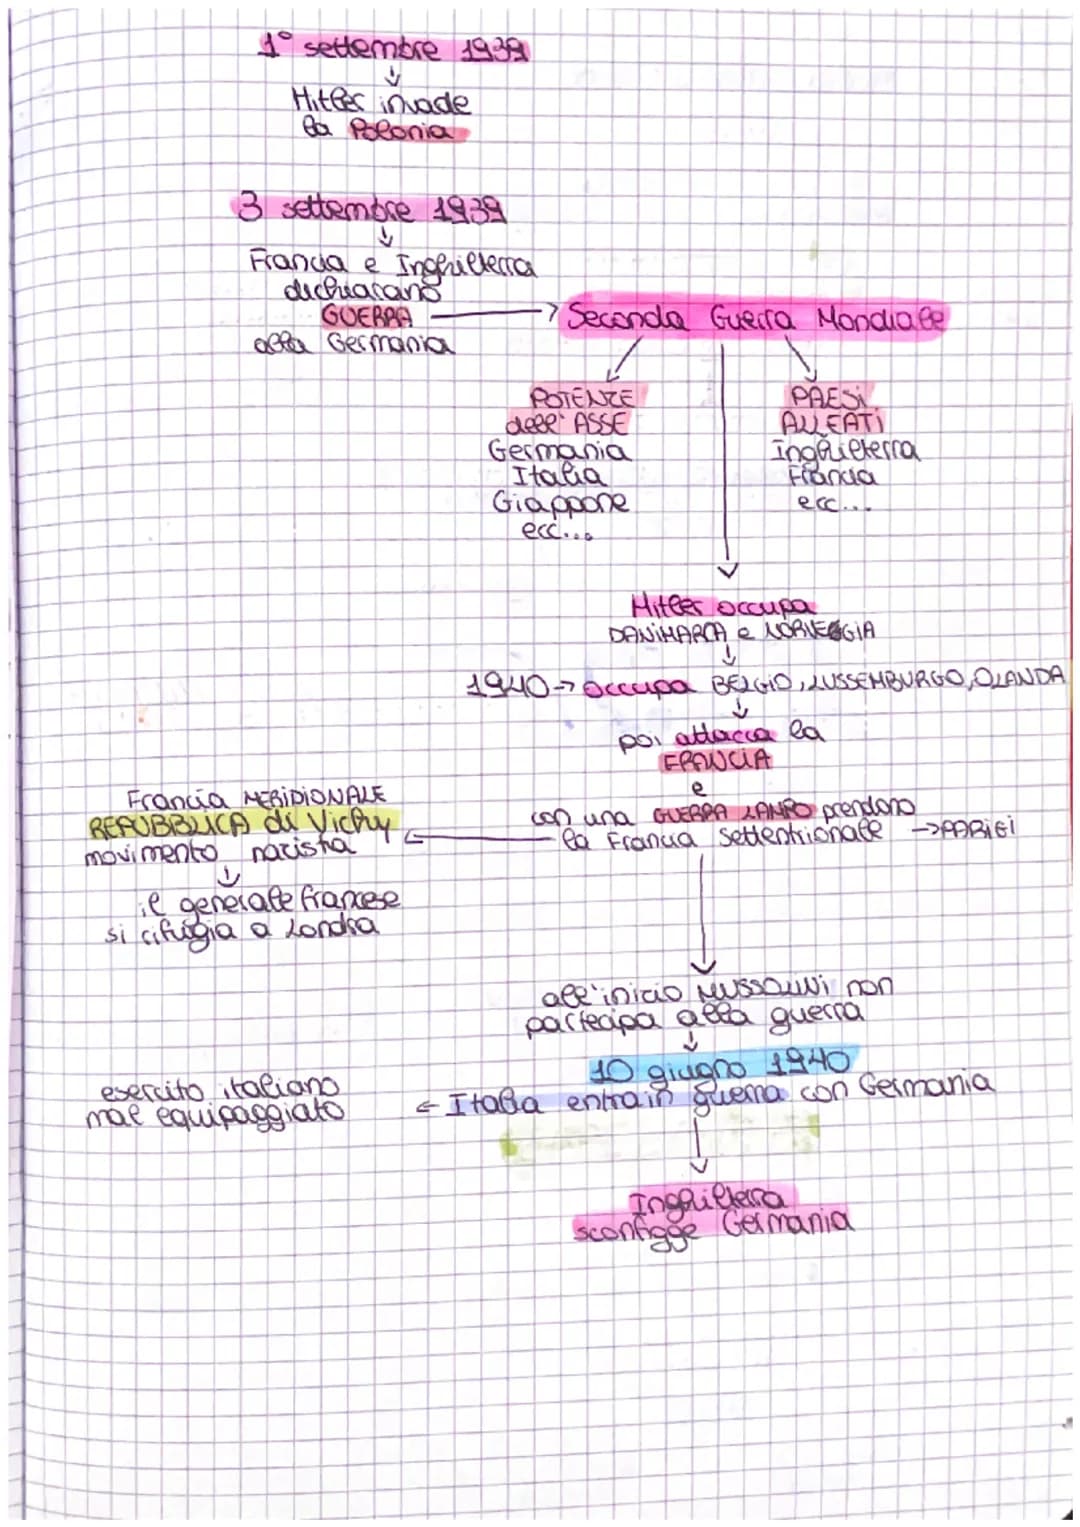 1° settembre 1939
↓
Hitler invade
la Polonia
3 settembre 1939
↓
Francia e Inghilterra
dichiarano
GUERRA → Seconda Guerra Mondiale
alla Germania
POTENZE
dell'ASSE
Germania
Italia
Giappone
ecc...
PAESI
ALLEATI
Inghilterra
Francia
ecc...
Hitler occupa
DANIMARCA e NORVEGGIA
↓
1940 → occupa BELGIO, LUSSEMBURGO, OLANDA
↓
poi attacca la
FRANCIA
e
con una GUERRA LAMPO prendono
la Francia settentrionale → PARIGI
Francia MERIDIONALE
REPUBBLICA di Vichy
movimento nazista
↓
il generale francese
si rifugia a Londra
all'inizio MUSSOLINI non
partecipa alla guerra
↓
10 giugno 1940
← Italia entra in guerra con Germania
esercito italiano
mal equipaggiato
Inghilterra
sconfigge Germania